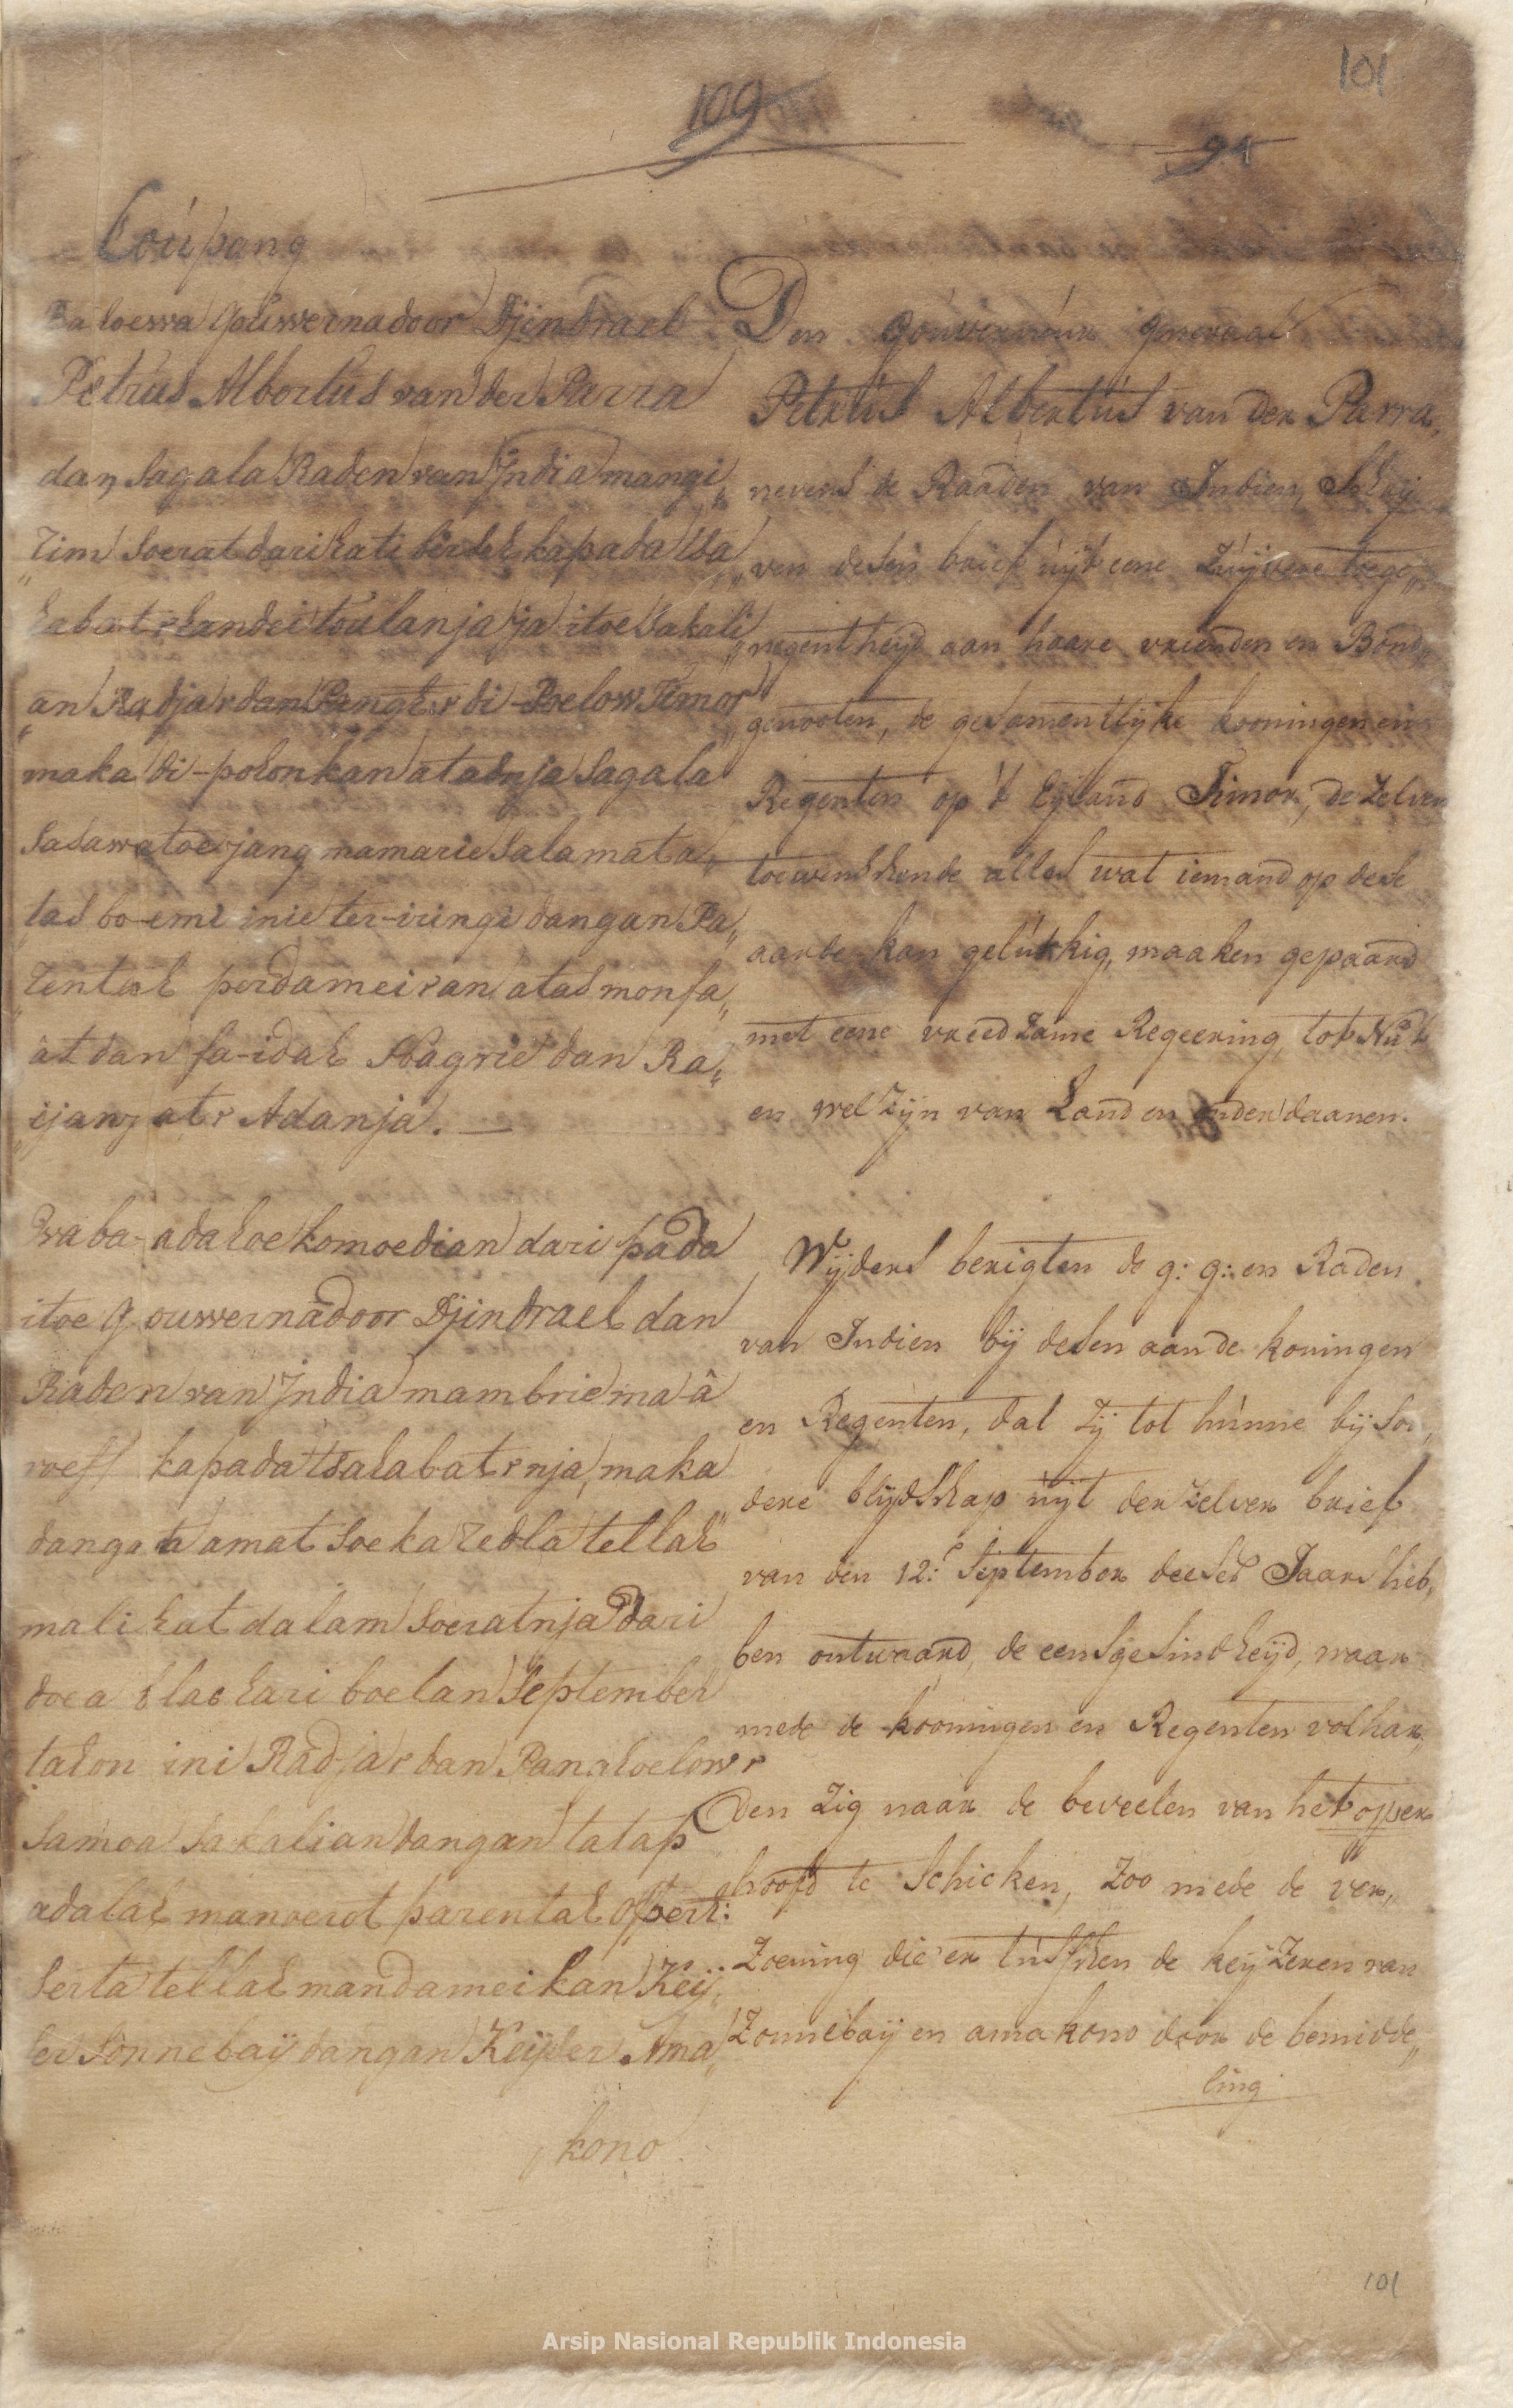 101
109
94
Coúpang
Baloewa Gouwernadoor Djindrael
Petrus Albertus van der Parra
dan Sagala Raden van India mangi„
„rim Soerat dari hati berseh kapada tsa„
habat r handei toulanja ja itoe Sakali„
„an Radja r dan Pangl: r di Poelow Timor
maka di-pohonkan atasnja Sagala
Sasawatoe jang mamarie Salamat a„
tas bo-emi inie ter-iringi dangan Pa„
„rentah perdameiran atas monfa„
ät dan fa-idah Nagrie dan Ra„
„ijang at r Adanja. —
Waba-adahoe komoedian dari pada
itoe Gouwernadoor Djindrael dan
Raden van India mambrie ma-â
roef kapada tsahabat r nja, maka
dangan amat Soeka redla tellah
malihat dalam Soeratnja dari
doea blas hari boelan September
tahon ini Radja r dan Panghoelow r
Samoa Sakalian dangan tatap
adalah manoerot parentah Opperh:
Serta tellah mandameikan Keij„
ser Sonnebaij dangan Keijser Ama„
kono
Den Gouverneúr generaal
Petrús Albertús van der Parra,
nevens de Raaden van Indien, Schrij„
„ven desen brief uijt eene Zuijvere toege„
„negentheijd aan haare vrienden en Bond„
„genooten, de gesamentlijke kooningen en
Regenten op 't Eijland Timor, de Zelven
toewenschende alles wat iemand op dese
aarde kan gelúkkig, maaken gepaard
met eene vreedZame Regeering, tot Nút
en welZijn van Land en onderdaanen.
Wijders berigten de g: g: en Raden
van Indien bij desen aan de koningen
en Regenten, dat Zij tot húnne bijson„
dere blijdschap uijt der Zelver brief
van den 12:e September deeses Jaars heb„
ben ontwaard, de eensgesindheijd, waar
mede de kooningen en Regenten volhar„
den Zig naar de beveelen van het opper„
hoofd te Schicken, Zoo mede de ver„
Zoening die er tússchen de keijZeren van
Zonnebaij en amakono door de bemidde„
ling
101
Arsip Nasional Republik Indonesia